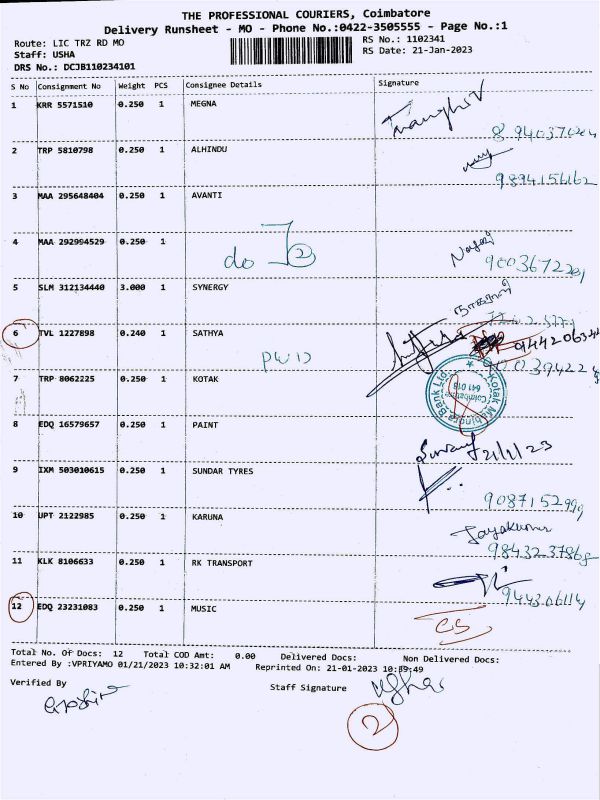 THE PROFESSIONAL COURIERS, Coimbatore
Delivery Runsheet - MO - Phone No.:0422-3505555 - Page No.:1
Route: LIC TRZ RD MO
RS No.: 1102341
Staff: USHA
RS Date: 21-Jan-2023
DRS No.: DCJB110234101
S No Consignment No Weight PCS Consignee Details Signature
1 KRR 5571510 0.250 1 MEGNA
2 TRP 5810798 0.250 1 ALHINDU
9894156162
3 MAA 295648404 0.250 1 AVANTI
4 MAA 292994529 0.250 1
do 2
5 SLM 312134440 3.000 1 SYNERGY
6 TVL 1227898 0.240 1 SATHYA
7 TRP 8062225 0.250 1 KOTAK
Kotak Mahindra Bank Ltd.
Coimbatore
641 018
8 EDQ 16579657 0.250 1 PAINT
21/1/23
9 IXM 503010615 0.250 1 SUNDAR TYRES
9087152999
10 UPT 2122985 0.250 1 KARUNA
Jayakumar
11 KLK 8106633 0.250 1 RK TRANSPORT
12 EDQ 23231083 0.250 1 MUSIC
CS
Total No. Of Docs: 12 Total COD Amt: 0.00 Delivered Docs: Non Delivered Docs:
Entered By :VPRIYAMO 01/21/2023 10:32:01 AM Reprinted On: 21-01-2023 10:39:49
Verified By Staff Signature
2